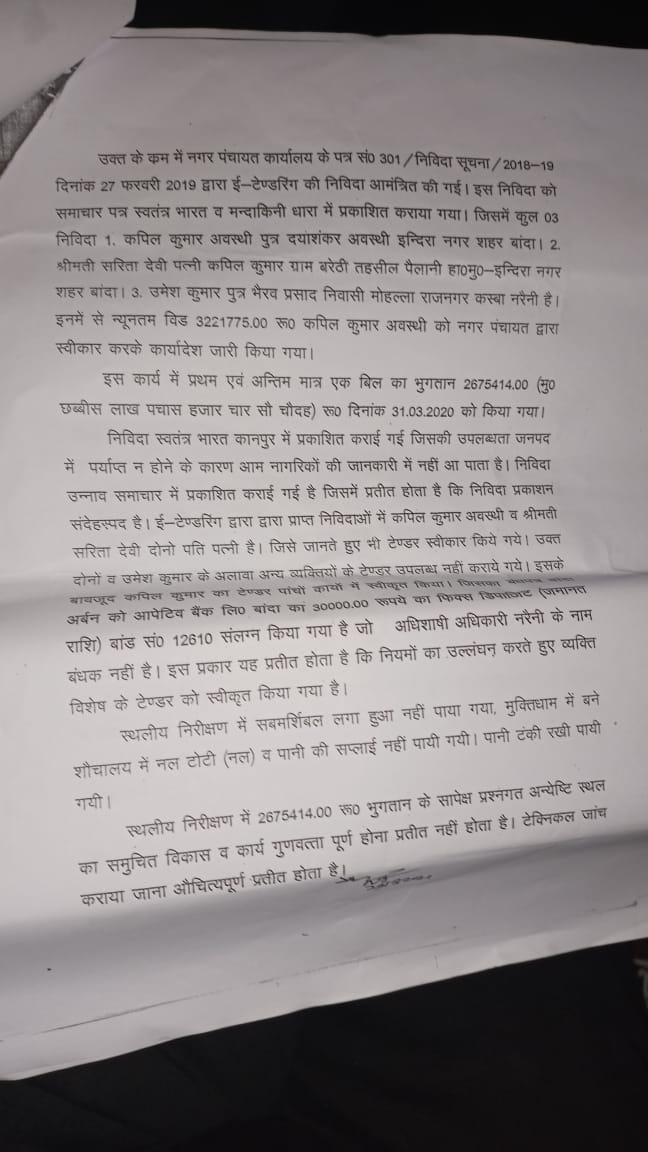 उक्त के कम में नगर पंचायत कार्यालय के पत्र सं0 301/निविदा सूचना/2018-19
दिनांक 27 फरवरी 2019 द्वारा ई-टेण्डरिंग की निविदा आमंत्रित की गई। इस निविदा को
समाचार पत्र स्वतंत्र भारत व मन्दाकिनी धारा में प्रकाशित कराया गया। जिसमें कुल 03
निविदा 1. कपिल कुमार अवस्थी पुत्र दयाशंकर अवस्थी इन्दिरा नगर शहर बांदा। 2.
श्रीमती सरिता देवी पत्नी कपिल कुमार ग्राम बरेठी तहसील पैलानी हा0मु0-इन्दिरा नगर
शहर बांदा। 3. उमेश कुमार पुत्र भैरव प्रसाद निवासी मोहल्ला राजनगर कस्बा नरैनी है।
इनमें से न्यूनतम विड 3221775.00 रू0 कपिल कुमार अवस्थी को नगर पंचायत द्वारा
स्वीकार करके कार्यादेश जारी किया गया।
इस कार्य में प्रथम एवं अन्तिम मात्र एक बिल का भुगतान 2675414.00 (मु0
छब्बीस लाख पचास हजार चार सौ चौदह) रू0 दिनांक 31.03.2020 को किया गया।
निविदा स्वतंत्र भारत कानपुर में प्रकाशित कराई गई जिसकी उपलब्धता जनपद
में पर्याप्त न होने के कारण आम नागरिकों की जानकारी में नहीं आ पाता है। निविदा
उन्नाव समाचार में प्रकाशित कराई गई है जिसमें प्रतीत होता है कि निविदा प्रकाशन
संदेहस्पद है। ई-टेण्डरिंग द्वारा द्वारा प्राप्त निविदाओं में कपिल कुमार अवस्थी व श्रीमती
सरिता देवी दोनो पति पत्नी है। जिसे जानते हुए भी टेण्डर स्वीकार किये गये। उक्त
दोनों व उमेश कुमार के अलावा अन्य व्यक्तियों के टेण्डर उपलब्ध नहीं कराये गये। इसके
बावजूद कपिल कुमार का टेण्डर पांचों कार्यो में स्वीकृत किया। जिसका
अर्बन को आपेटिव बैंक लि0 बांदा का 30000.00 रूपये का फिक्स डिपाजिट (जमानत
राशि) बांड सं0 12610 संलग्न किया गया है जो अधिशाषी अधिकारी नरैनी के नाम
बंधक नहीं है। इस प्रकार यह प्रतीत होता है कि नियमों का उल्लंघन करते हुए व्यक्ति
विशेष के टेण्डर को स्वीकृत किया गया है।
स्थलीय निरीक्षण में सबमर्शिबल लगा हुआ नहीं पाया गया, मुक्तिधाम में बने
शौचालय में नल टोटी (नल) व पानी की सप्लाई नहीं पायी गयी। पानी टंकी रखी पायी
गयी।
स्थलीय निरीक्षण में 2675414.00 रू0 भुगतान के सापेक्ष प्रश्नगत अन्येष्टि स्थल
का समुचित विकास व कार्य गुणवत्ता पूर्ण होना प्रतीत नहीं होता है। टेक्निकल जांच
कराया जाना औचित्यपूर्ण प्रतीत होता है।